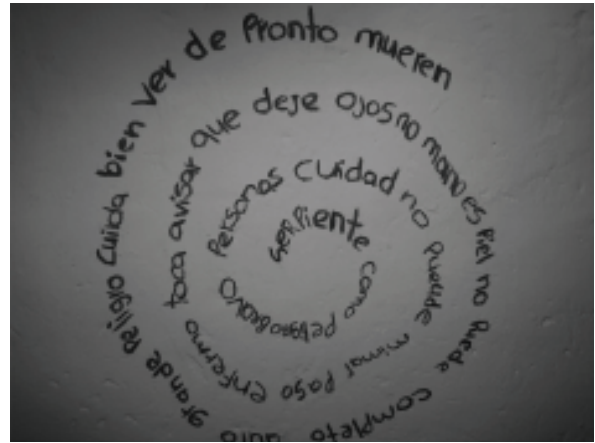 serpiente como peligro bravo personas cuidad no puede mimar paso enfermo toca avisar que deje ojos no mano es piel no puede completo auto grande peligro cuida bien ver de pronto mueren